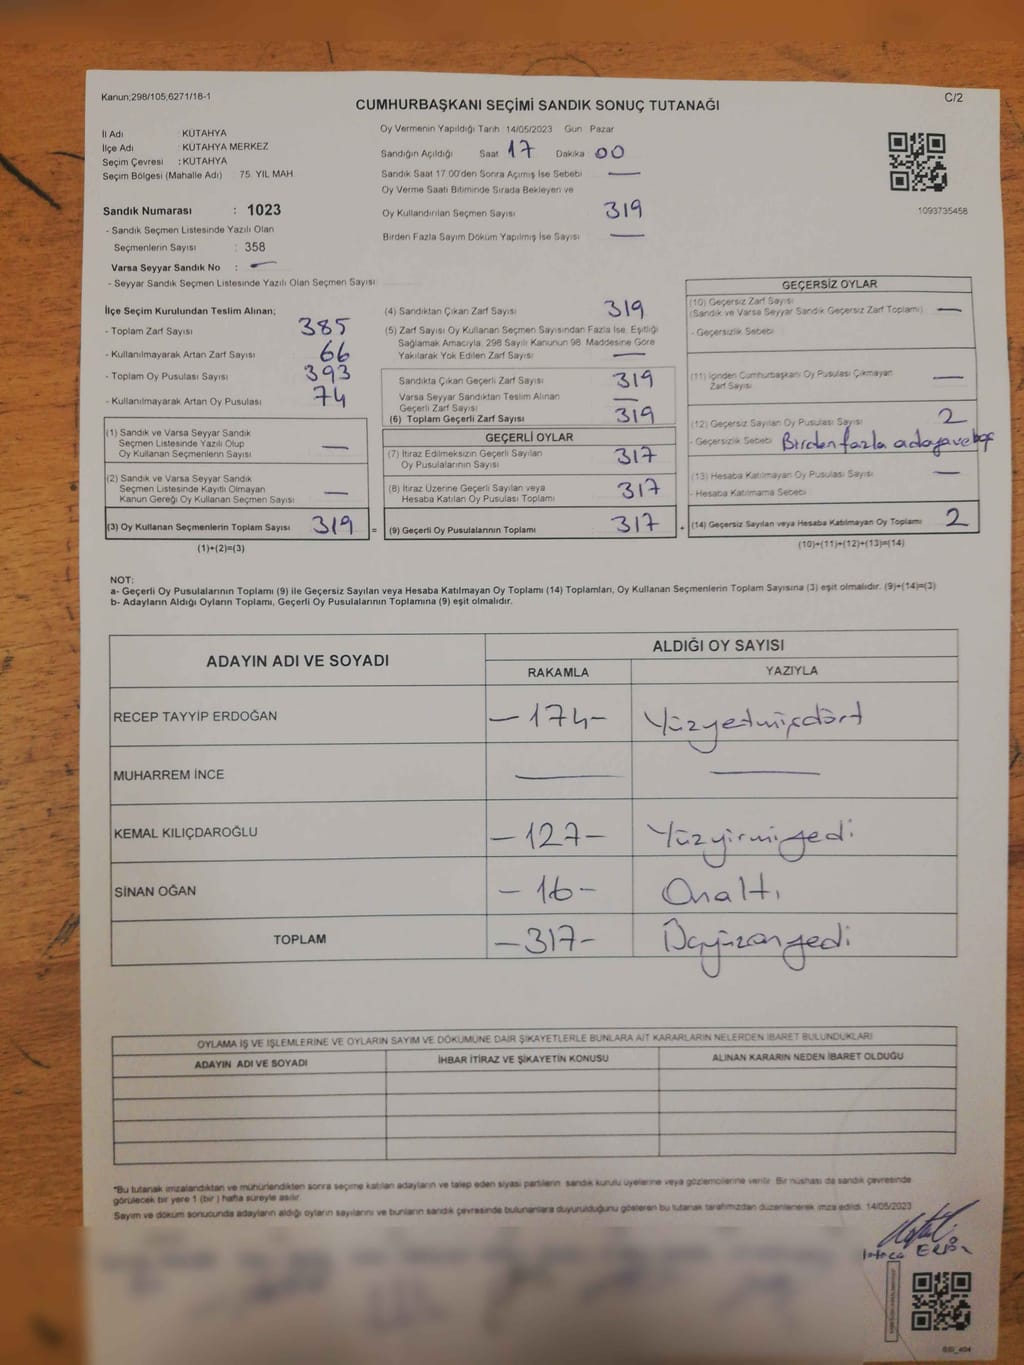 Kanun;298/105,6271/18-1
CUMHURBAŞKANI SEÇİMİ SANDIK SONUÇ TUTANAĞI
C/2
İl Adı : KÜTAHYA
İlçe Adı : KÜTAHYA MERKEZ
Seçim Çevresi : KÜTAHYA
Seçim Bölgesi (Mahalle Adı) 75. YIL MAH.
Sandık Numarası : 1023
- Sandık Seçmen Listesinde Yazılı Olan
Seçmenlerin Sayısı : 358
Varsa Seyyar Sandık No : —
- Seyyar Sandık Seçmen Listesinde Yazılı Olan Seçmen Sayısı
Oy Vermenin Yapıldığı Tarih 14/05/2023 Gün Pazar
Sandığın Açıldığı Saat 17 Dakika 00
Sandık Saat 17.00'den Sonra Açımış İse Sebebi —
Oy Verme Saati Bitiminde Sırada Bekleyen ve
Oy Kullandırılan Seçmen Sayısı 319
Birden Fazla Sayım Döküm Yapılmış İse Sayısı —
1093735458
İlçe Seçim Kurulundan Teslim Alınan;
- Toplam Zarf Sayısı 385
- Kullanılmayarak Artan Zarf Sayısı 66
- Toplam Oy Pusulası Sayısı 393
- Kullanılmayarak Artan Oy Pusulası 74
(1) Sandık ve Varsa Seyyar Sandık
Seçmen Listesinde Yazılı Olup
Oy Kullanan Seçmenlerin Sayısı —
(2) Sandık ve Varsa Seyyar Sandık
Seçmen Listesinde Kayıtlı Olmayan
Kanun Gereği Oy Kullanan Seçmen Sayısı —
(3) Oy Kullanan Seçmenlerin Toplam Sayısı 319 =
(1)+(2)=(3)
(4) Sandıktan Çıkan Zarf Sayısı 319
(5) Zarf Sayısı Oy Kullanan Seçmen Sayısından Fazla İse, Eşitliği
Sağlamak Amacıyla, 298 Sayılı Kanunun 98. Maddesine Göre
Yakılarak Yok Edilen Zarf Sayısı —
Sandıkta Çıkan Geçerli Zarf Sayısı 319
Varsa Seyyar Sandıktan Teslim Alınan
Geçerli Zarf Sayısı —
(6) Toplam Geçerli Zarf Sayısı 319
GEÇERLİ OYLAR
(7) İtiraz Edilmeksizin Geçerli Sayılan
Oy Pusulalarının Sayısı 317
(8) İtiraz Üzerine Geçerli Sayılan veya
Hesaba Katılan Oy Pusulası Toplamı 317
(9) Geçerli Oy Pusulalarının Toplamı 317 +
GEÇERSİZ OYLAR
(10) Geçersiz Zarf Sayısı
(Sandık ve Varsa Seyyar Sandık Geçersiz Zarf Toplamı) —
- Geçersizlik Sebebi
(11) İçinden Cumhurbaşkanı Oy Pusulası Çıkmayan
Zarf Sayısı —
(12) Geçersiz Sayılan Oy Pusulası Sayısı 2
- Geçersizlik Sebebi Birden fazla adaya
(13) Hesaba Katılmayan Oy Pusulası Sayısı —
- Hesaba Katılmama Sebebi
(14) Geçersiz Sayılan veya Hesaba Katılmayan Oy Toplamı 2
(10)+(11)+(12)+(13)=(14)
NOT:
a- Geçerli Oy Pusulalarının Toplamı (9) ile Geçersiz Sayılan veya Hesaba Katılmayan Oy Toplamı (14) Toplamları, Oy Kullanan Seçmenlerin Toplam Sayısına (3) eşit olmalıdır. (9)+(14)=(3)
b- Adayların Aldığı Oyların Toplamı, Geçerli Oy Pusulalarının Toplamına (9) eşit olmalıdır.
ADAYIN ADI VE SOYADI
ALDIĞI OY SAYISI
RAKAMLA YAZIYLA
RECEP TAYYİP ERDOĞAN —174— Yüzyetmişdört
MUHARREM İNCE — —
KEMAL KILIÇDAROĞLU —127— Yüzyirmiyedi
SİNAN OĞAN —16— Onaltı
TOPLAM —317— Üçyüzonyedi
OYLAMA İŞ VE İŞLEMLERİNE VE OYLARIN SAYIM VE DÖKÜMÜNE DAİR ŞİKAYETLERLE BUNLARA AİT KARARLARIN NELERDEN İBARET BULUNDUKLARI
ADAYIN ADI VE SOYADI İHBAR İTİRAZ VE ŞİKAYETİN KONUSU ALINAN KARARIN NEDEN İBARET OLDUĞU
*Bu tutanak imzalandıktan ve mühürlendikten sonra seçime katılan adayların ve talep eden siyasi partilerin sandık kurulu üyelerine veya gözlemcilerine verilir. Bir nüshası da sandık çevresinde
görülecek bir yere 1 (bir ) hafta süreyle asılır.
Sayım ve döküm sonucunda adayların aldığı oyların sayılarını ve bunların sandık çevresinde bulunanlara duyurulduğunu gösteren bu tutanak tarafımızdan düzenlenerek imza edildi. 14/05/2023